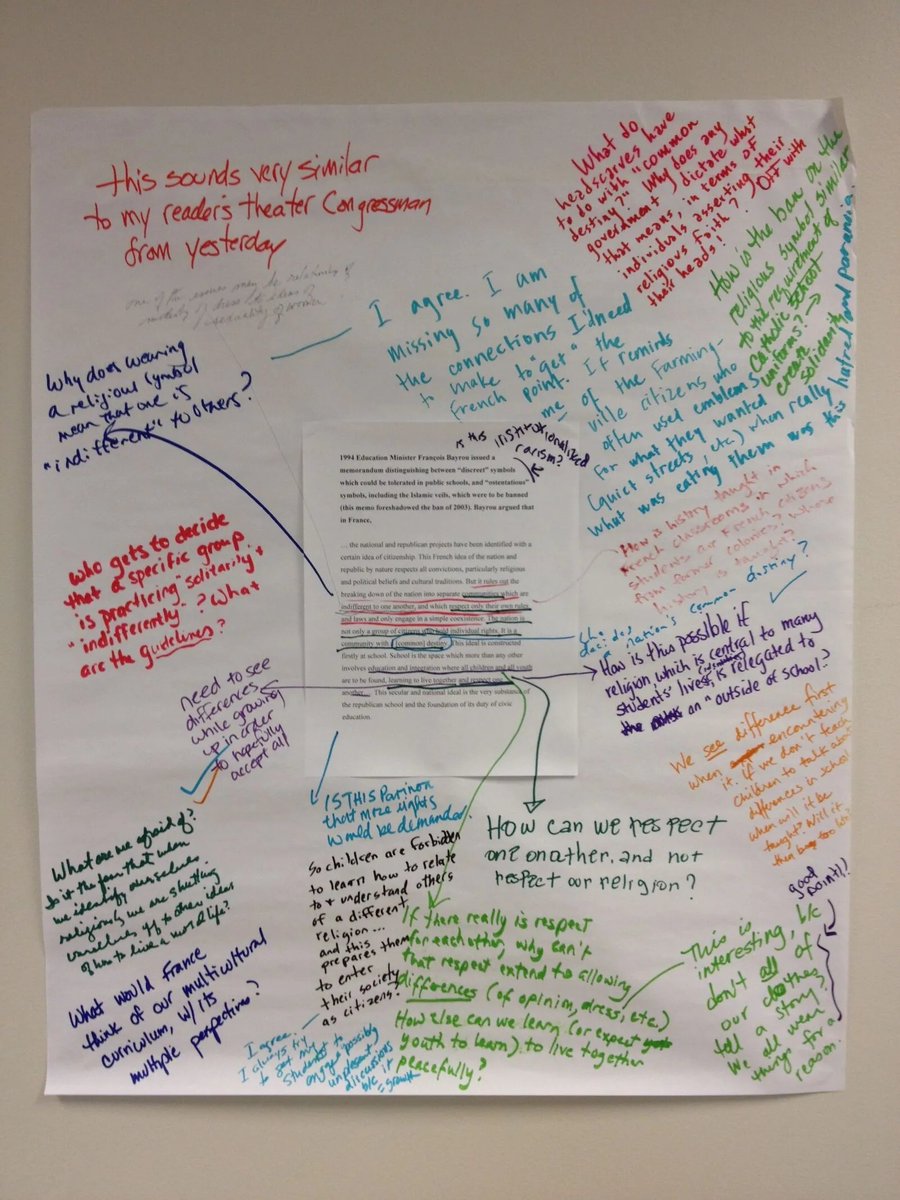 this sounds very similar
to my reader's theater Congressman
from yesterday
one of the issues may be relations of
modesty of dress to ideas of
sexuality of women
I agree. I am
missing so many of
the connections I'd need
to make to "get" the
French point. It reminds
me of the Farming-
ville citizens who
often used emblems
for what they wanted
(quiet streets, etc) when really
what was eating them was this hatred and paranoia.
What do
headscarves have
to do with "common
destiny?" Why does any
government dictate what
that means, in terms of
individuals asserting their
religious faith? Off with
their heads!
How is the ban on the
religious symbol similar
to the requirement of
Catholic school
uniforms? →
create
solidarity
Why does wearing
a religious symbol
mean that one is
"indifferent" to others?
is this institutionalized
racism?
1994 Education Minister François Bayrou issued a
memorandum distinguishing between "discreet" symbols
which could be tolerated in public schools, and "ostentatious"
symbols, including the Islamic veils, which were to be banned
(this memo foreshadowed the ban of 2003). Bayrou argued that
in France,
… the national and republican projects have been identified with a
certain idea of citizenship. This French idea of the nation and
republic by nature respects all convictions, particularly religious
and political beliefs and cultural traditions. But it rules out the
breaking down of the nation into separate communities which are
indifferent to one another, and which respect only their own rules
and laws and only engage in a simple coexistence. The nation is
not only a group of citizens who hold individual rights. It is a
community with [common] destiny This ideal is constructed
firstly at school. School is the space which more than any other
involves education and integration where all children and all youth
are to be found, learning to live together and respect one
another.... This secular and national ideal is the very substance of
the republican school and the foundation of its duty of civic
education.
How is history taught in
French classrooms in which
students are French citizens
from former colonies? Whose
history is taught?
who decides
a nation's common destiny?
How is this possible if
religion which is central to many
students' lives, is relegated to
the on "outside of school?
We see difference first
when encountering
it. If we don't teach
children to talk about
differences in school
when will it be
taught? Will it
then be too late
who gets to decide
that a specific group
is practicing "solitarity" +
"indifferently"? What
are the guidelines?
need to see
differences
while growing
up in order
to hopefully
accept all
What are we afraid of?
Is it the fear that when
we identify ourselves
religiously we are shutting
ourselves off to other ideas
of how to live a moral life?
What would France
think of our multicultural
curriculum, w/ its
multiple perspectives?
IS THIS
that more rights
would be demanded.
So children are forbidden
to learn how to relate
to + understand others
of a different
religion...
and this
prepares them
to enter
their society
as citizens?
I agree.
I always try
to get my
students to
engage possibly
unpleasant
discussions
b/c it
=growth
How can we respect
one another, and not
respect our religion?
If there really is respect
for each other, why can't
that respect extend to allowing
differences (of opinion, dress, etc.)
How else can we learn (or expect
youth to learn) to live together
peacefully?
This is
interesting, b/c
don't all of
our clothes
tell a story?
We all wear
things for a
reason.
good
point!!